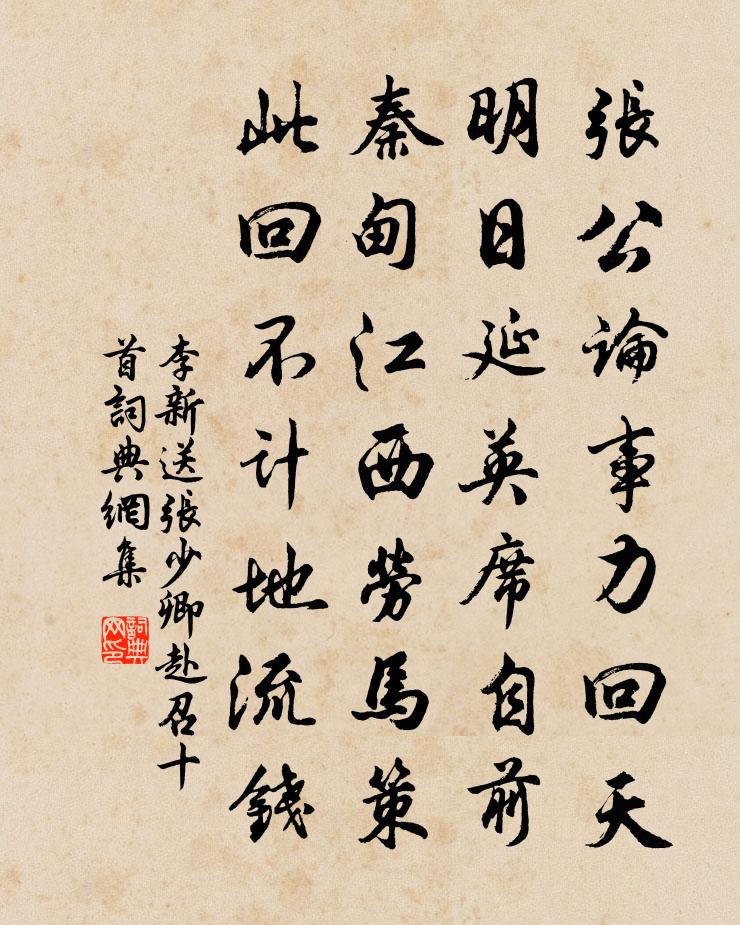 張公論事力回天
明日延英席自前
秦甸江西勞馬策
此回不計地流錢
李新送張少卿赴召十
首詞典網集
詞典
网印